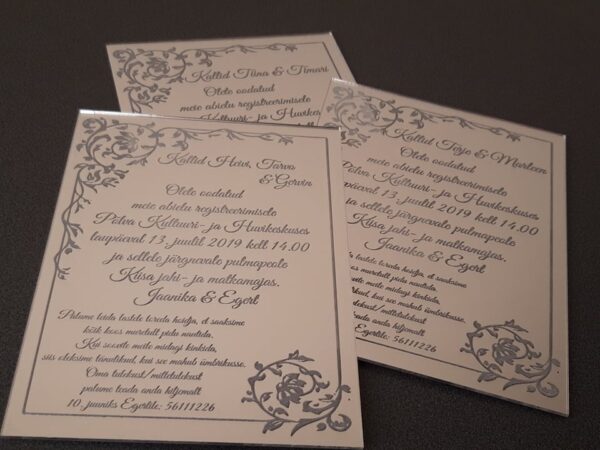 Kallid Tiina & Timari
Olete oodatud
meie abielu registreerimisele
Kultuuri- ja Huvikeskuses
Kallid Terje & Marleen
Olete oodatud
meie abielu registreerimisele
Põlva Kultuuri- ja Huvikeskuses
laupäeval 13. juulil 2019 kell 14.00
ja sellele järgnevale pulmapeole
Kiisa jahi- ja matkamajas.
Jaanika & Egert
lastele toreda hoidja, et saaksime
koos muretult pidu nautida.
soovite meile midagi kinkida,
tänulikud, kui see mahub ümbrikusse.
tulekust/mittetulekust
teada anda hiljemalt
Egertile: 56111226
Kallid Heivi, Tarvo
& Gervin
Olete oodatud
meie abielu registreerimisele
Põlva Kultuuri- ja Huvikeskuses
laupäeval 13. juulil 2019 kell 14.00
ja sellele järgnevale pulmapeole
Kiisa jahi- ja matkamajas.
Jaanika & Egert
Palume leida lastele toreda hoidja, et saaksime
kõik koos muretult pidu nautida.
Kui soovite meile midagi kinkida,
siis oleksime tänulikud, kui see mahub ümbrikusse.
Oma tulekust/mittetulekust
palume teada anda hiljemalt
10. juuniks Egertile: 56111226